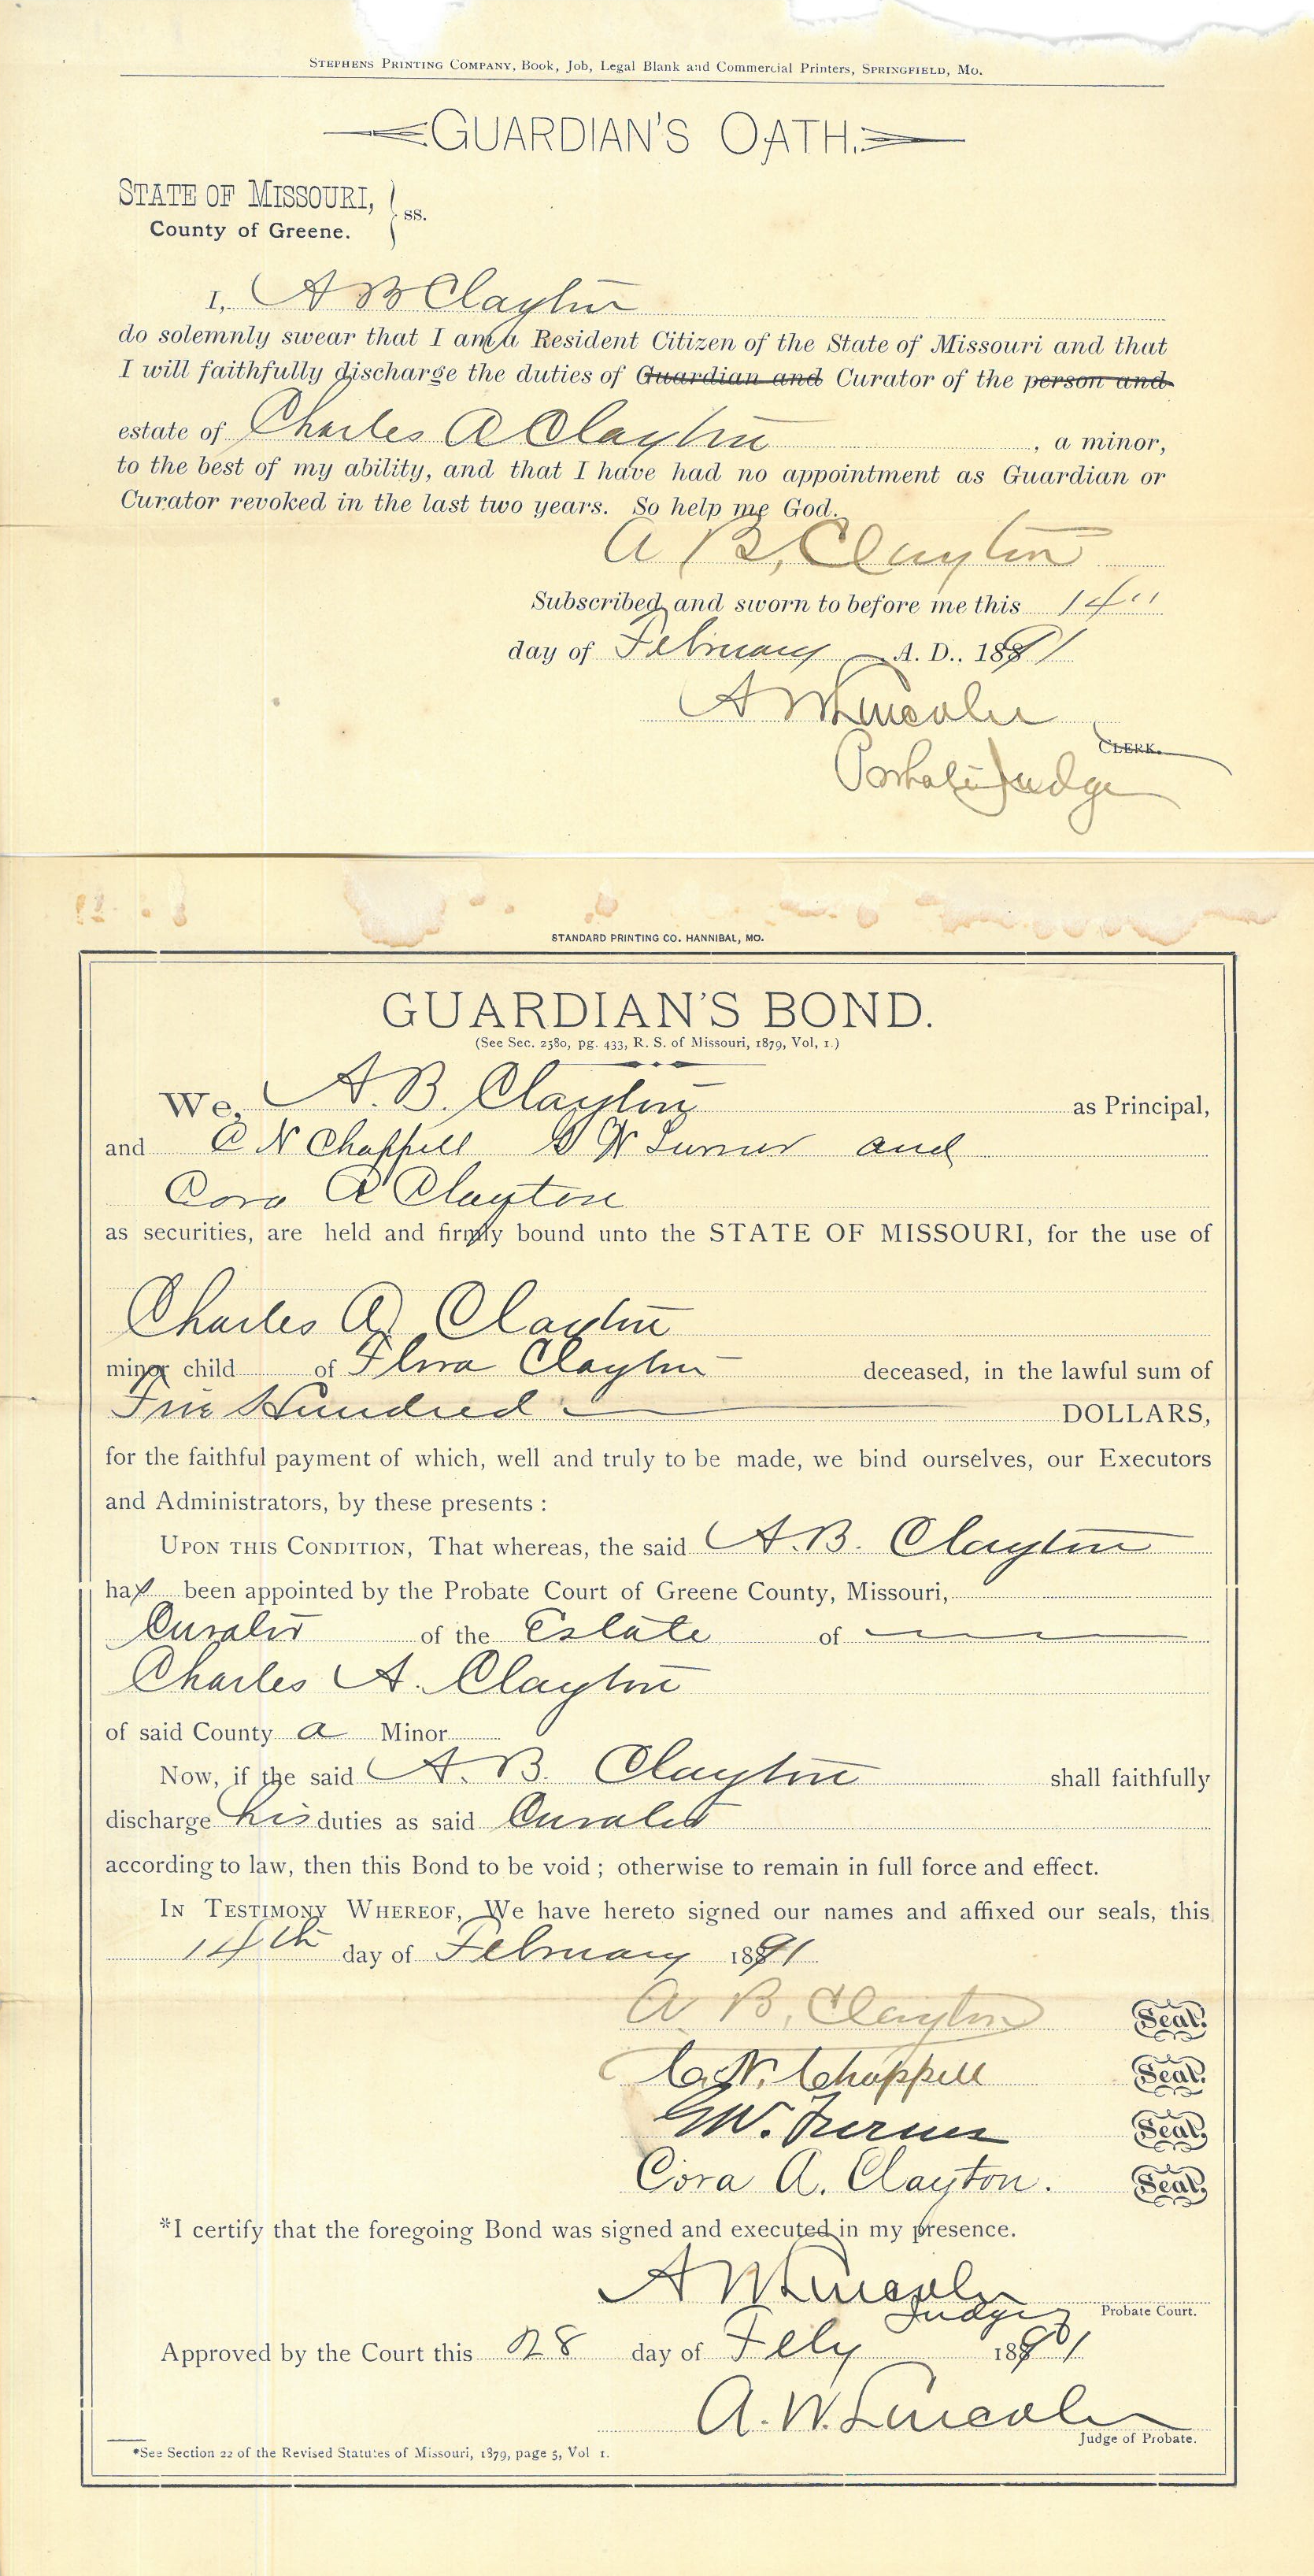 STEPHENS PRINTING COMPANY, Book, Job, Legal Blank and Commercial Printers, SPRINGFIELD, MO.
GUARDIAN'S OATH.
STATE OF MISSOURI, } ss.
County of Greene.
I, A B Clayton
do solemnly swear that I am a Resident Citizen of the State of Missouri and that
I will faithfully discharge the duties of Guardian and Curator of the person and
estate of Charles A Clayton, a minor,
to the best of my ability, and that I have had no appointment as Guardian or
Curator revoked in the last two years. So help me God.
A B, Clayton
Subscribed and sworn to before me this 14"
day of February A. D., 1891
A W Lincoln
CLERK.
Probate Judge
STANDARD PRINTING CO. HANNIBAL, MO.
GUARDIAN'S BOND.
(See Sec. 2580, pg. 433, R. S. of Missouri, 1879, Vol, 1.)
We, A. B. Clayton as Principal,
and C N Chappell G W Turner and
Cora A Clayton
as securities, are held and firmly bound unto the STATE OF MISSOURI, for the use of
Charles A Clayton
minor child of Flora Clayton deceased, in the lawful sum of
Five Hundred DOLLARS,
for the faithful payment of which, well and truly to be made, we bind ourselves, our Executors
and Administrators, by these presents :
UPON THIS CONDITION, That whereas, the said A. B. Clayton
has been appointed by the Probate Court of Greene County, Missouri,
Curator of the Estate of
Charles A. Clayton
of said County a Minor
Now, if the said A. B. Clayton shall faithfully
discharge his duties as said Curator
according to law, then this Bond to be void ; otherwise to remain in full force and effect.
IN TESTIMONY WHEREOF, We have hereto signed our names and affixed our seals, this
14th day of February 1891
A B, Clayton Seal.
C. N. Chappell Seal.
G W. Turner Seal.
Cora A. Clayton. Seal.
*I certify that the foregoing Bond was signed and executed in my presence.
A W Lincoln
Judge Probate Court.
Approved by the Court this 28 day of Feby 1891
A. W. Lincoln
Judge of Probate.
*See Section 22 of the Revised Statutes of Missouri, 1879, page 5, Vol 1.